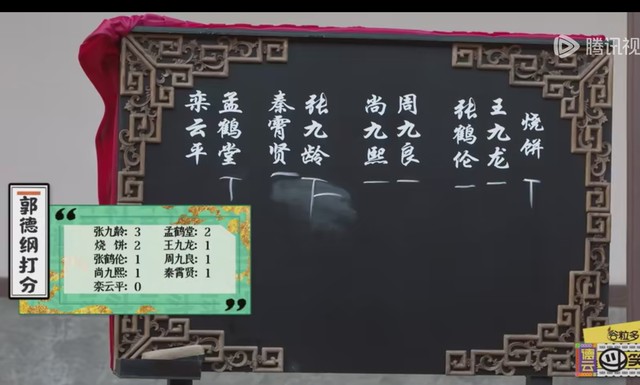 腾讯视
烧饼
王九龙
张鹤伦
周九良
尚九熙
张九龄
秦霄贤
孟鹤堂
栾云平
郭德纲打分
张九龄: 3 孟鹤堂: 2
烧 饼: 2 王九龙: 1
张鹤伦: 1 周九良: 1
尚九熙: 1 秦霄贤: 1
栾云平: 0
谷粒多
德云
笑